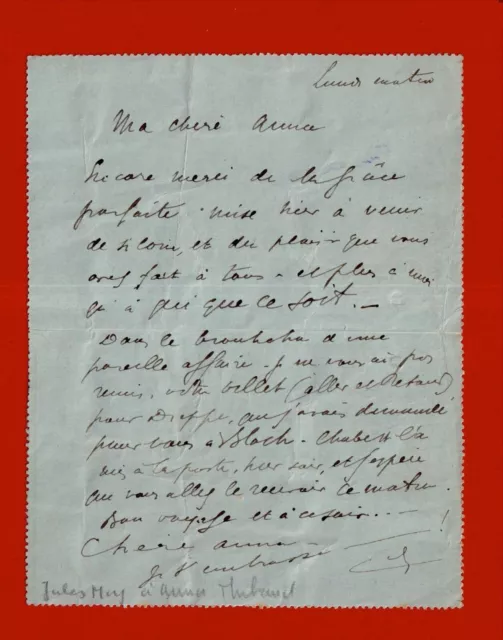 lundi matin
Ma chère Anna
Encore merci de la grâce
parfaite mise hier à venir
de si loin, et du plaisir que vous
avez fait à tous - et plus à moi
qu'à qui que ce soit. -
Dans le brouhaha d'une
pareille affaire. je ne vous ai pas
remis, votre billet (aller et retour)
pour Dieppe, que j'avais demandé
pour vous à Bloch. Chabert l'a
mis à la poste, hier soir, et j'espère
que vous allez le recevoir ce matin.
Bon voyage et à ce soir... - !
Chère Anna
Je t'embrasse
Jules Moy à Anna Thibaud